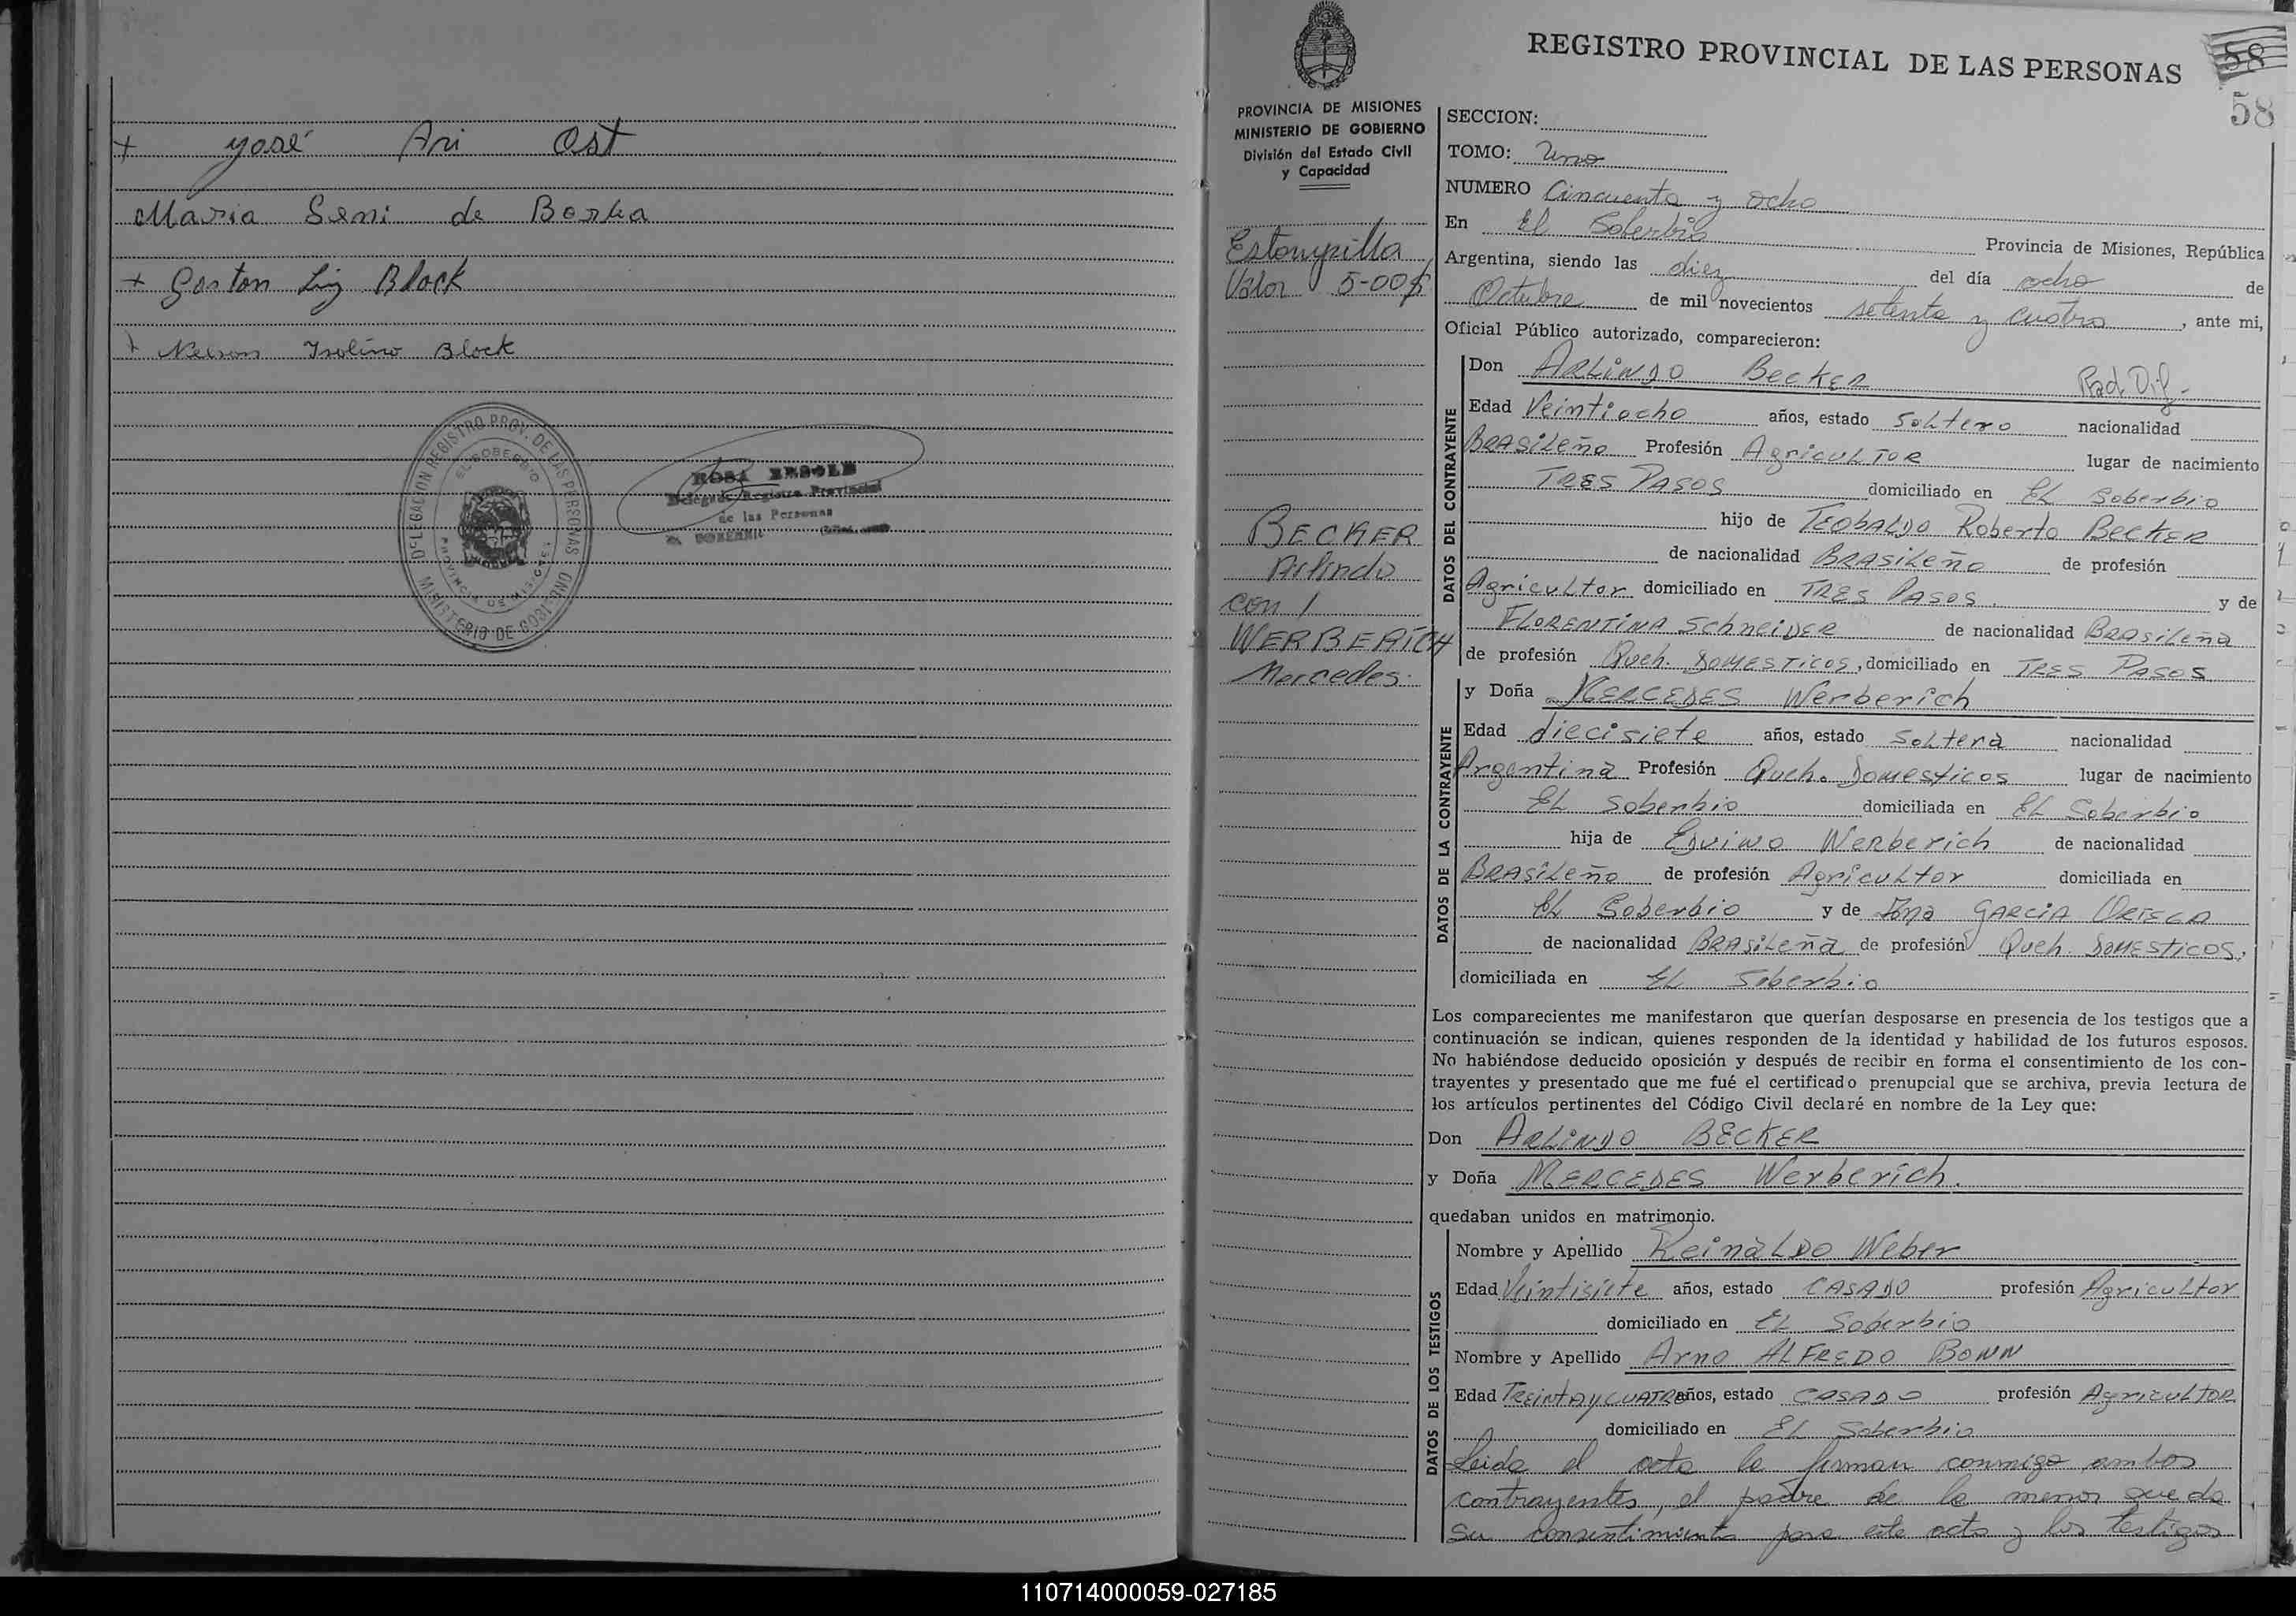 + José Ari Ost
Maria Seni de Borba
+ Gaston Liz Block
+ Nelson Isolino Block
DELEGACION REGISTRO PROV. DE LAS PERSONAS
EL SOBERBIO
PROVINCIA DE MISIONES
MINISTERIO DE GOBIERNO
ROSA
Delegado Registro Provincial
de las Personas
EL SOBERBIO
REGISTRO PROVINCIAL DE LAS PERSONAS
58
58
PROVINCIA DE MISIONES
MINISTERIO DE GOBIERNO
División del Estado Civil
y Capacidad
Estampilla
Valor 5-00$
BECKER
Arlindo
con
WERBERICH
Mercedes.
SECCION:
TOMO: Uno
NUMERO Cincuenta y ocho
En El Soberbio Provincia de Misiones, República
Argentina, siendo las diez del día ocho de
Octubre de mil novecientos setenta y cuatro, ante mi,
Oficial Público autorizado, comparecieron:
DATOS DEL CONTRAYENTE
Don ARLINDO BECKER Rad. Dif.
Edad Veintiocho años, estado Soltero nacionalidad
BRASILEÑO Profesión Agricultor lugar de nacimiento
TRES PASOS domiciliado en EL Soberbio
hijo de TEOBALDO Roberto BECKER
de nacionalidad BRASILEÑO de profesión
Agricultor domiciliado en TRES PASOS. y de
FLORENTINA SchneiDER de nacionalidad BRASILEÑA
de profesión Queh. DOMESTICOS, domiciliado en TRES PASOS
DATOS DE LA CONTRAYENTE
y Doña MERCEDES Werberich
Edad diecisiete años, estado SoLtera nacionalidad
Argentina Profesión Queh. Domesticos lugar de nacimiento
EL Soberbio domiciliada en EL Soberbio
hija de EDUINO WERberich de nacionalidad
BRASILEÑO de profesión Agricultor domiciliada en
EL Soberbio y de GARCIA
de nacionalidad BRASILEÑA de profesión Queh. DOMESTICOS,
domiciliada en EL Soberbio
Los comparecientes me manifestaron que querían desposarse en presencia de los testigos que a
continuación se indican, quienes responden de la identidad y habilidad de los futuros esposos.
No habiéndose deducido oposición y después de recibir en forma el consentimiento de los con-
trayentes y presentado que me fué el certificado prenupcial que se archiva, previa lectura de
los artículos pertinentes del Código Civil declaré en nombre de la Ley que:
Don ARLINDO BECKER
y Doña MERCEDES Werberich.
quedaban unidos en matrimonio.
DATOS DE LOS TESTIGOS
Nombre y Apellido ReinaLDO Weber
Edad Veintisiete años, estado CASADO profesión Agricultor
domiciliado en EL Soberbio
Nombre y Apellido Arno ALFREDO BONN
Edad TREINTA y CUATRO años, estado CASADO profesión Agricultor
domiciliado en EL Soberbio
Leida el acta la firman conmigo ambos
contrayentes, el padre de la menor que da
su consentimiento para este acto y los testigos
110714000059-027185